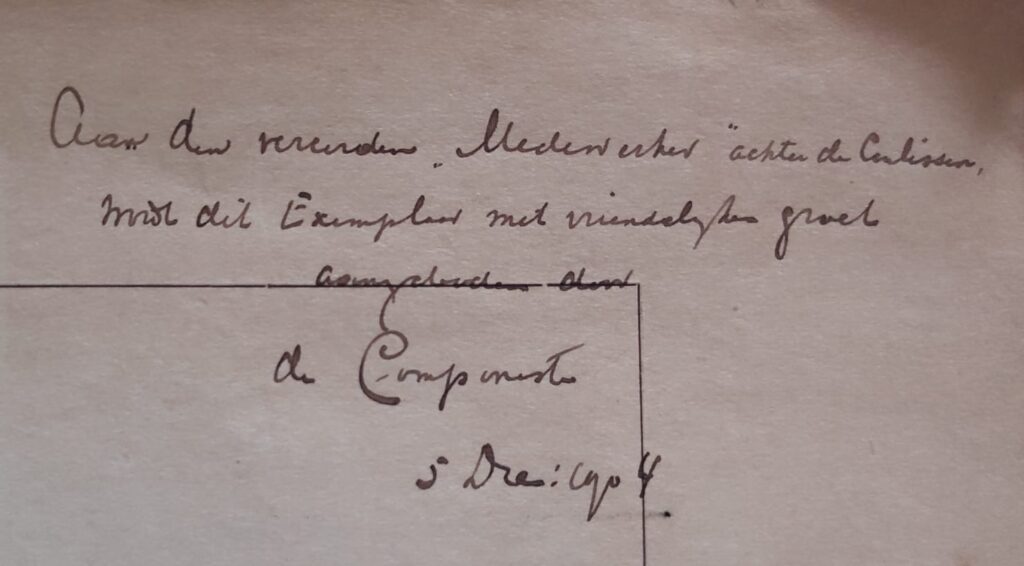 Aan den vereerden „Medewerker" achter de Coulissen,
wordt dit Exemplaar met vriendelijken groet
aangeboden door
de Componiste
5 Dec: 1904